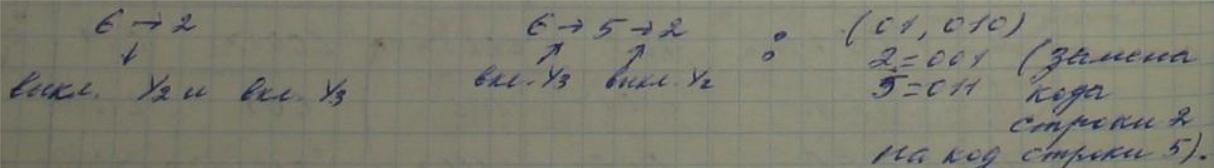 6 → 2 6 → 5 → 2 : (01, 010)
↓ ↑ ↑ 2=001 (замена
выкл. Y₂ и вкл. Y₃ вкл. Y₃ выкл. Y₂ 5=011 кода
строки 2
на код строки 5).